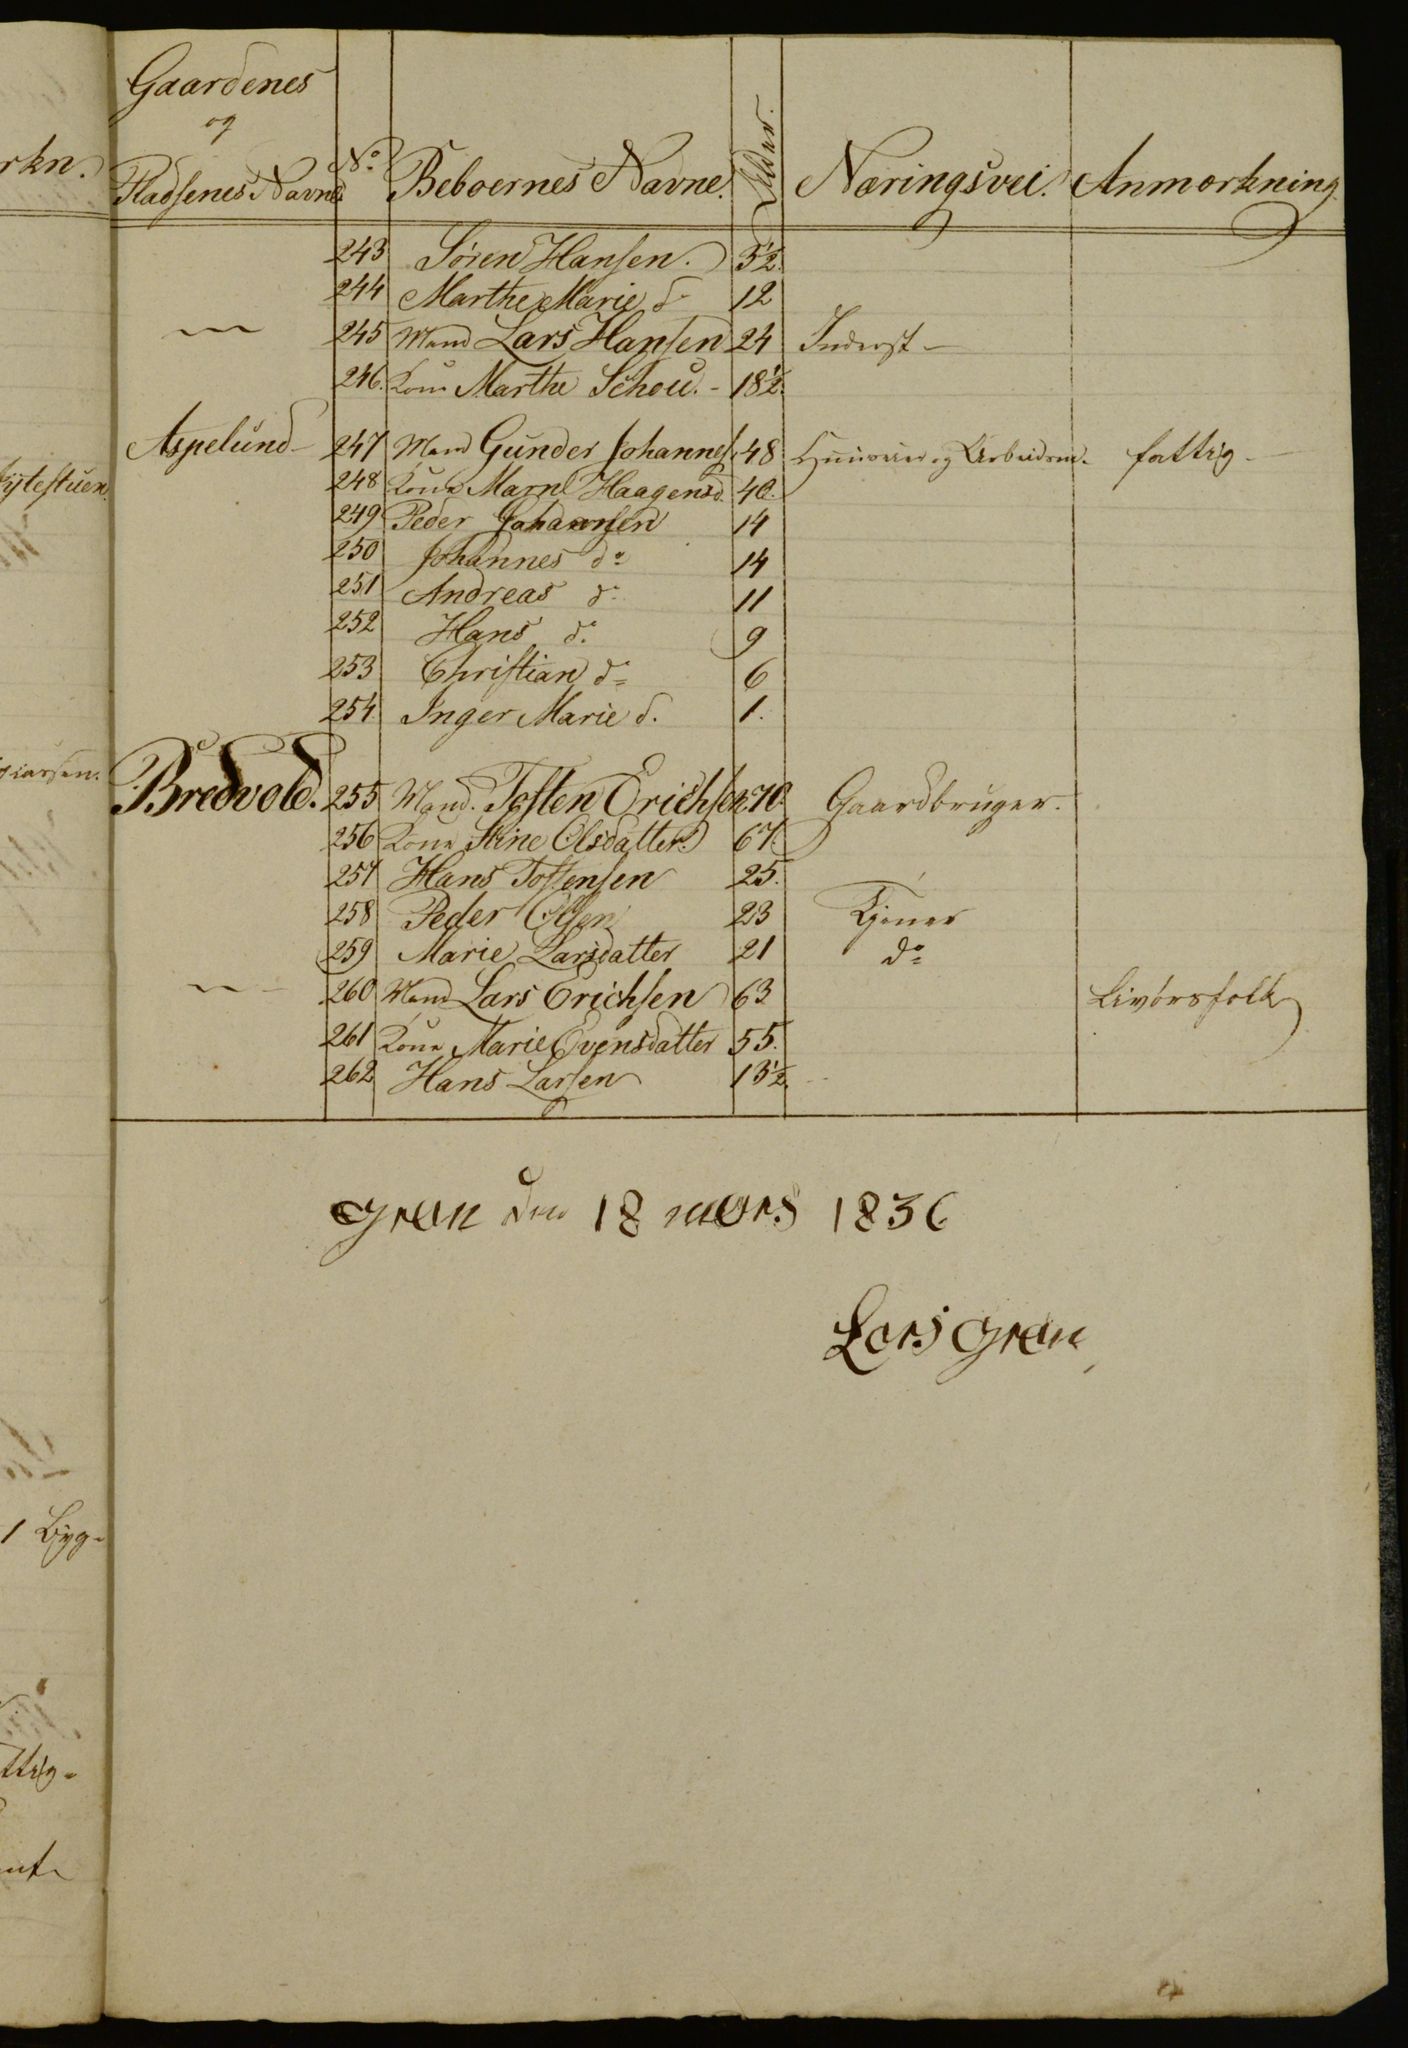 rkn.
Kytestuen.
Larsen.
1 Byg-
ttig-
Gaardenes
og
Pladsenes Navne No. Beboernes Navne. Alder. Næringsvei. Anmærkning
243 Sören Hansen. 3½.
244 Marthe Marie do 12
— 245 Mand Lars Hansen 24 Inderst -
246. Kone Marthe Schou. - 18½.
Aspelund - 247 Mand Gunder Johannes. 48 Huusmand og Arbeidsm. fattig -
248 Kone Marn Haagensd. 40.
249 Peder Johansen 14
250 Johannes do 14
251 Andreas do 11
252 Hans do 9
253 Christian do 6
254 Inger Marie d. 1.
Bredvold. 255 Mand. Tosten Erichsen 70. Gaardbruger.
256 Kone Stine Olsdatter 67.
257 Hans Tostensen 25.
258 Peder Olsen 23 Tjener
259 Marie Larsdatter 21 do
— 260 Mand Lars Erichsen 63 Livörsfolk
261 Kone Marie Evensdatter 55.
262 Hans Larsen 13½.
Gran den 18 mars 1836
Lars Gran